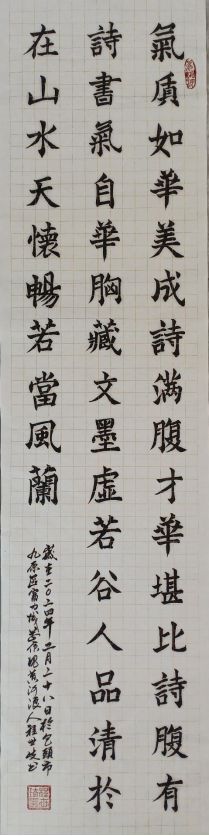 氣质如華美成詩满腹才華堪比詩腹有
詩書氣自華胸藏文墨虛若谷人品清於
在山水天懷暢若當風蘭
歲在二〇二四年月二十八日於包頭市
九原區富力城黄河浪人程世